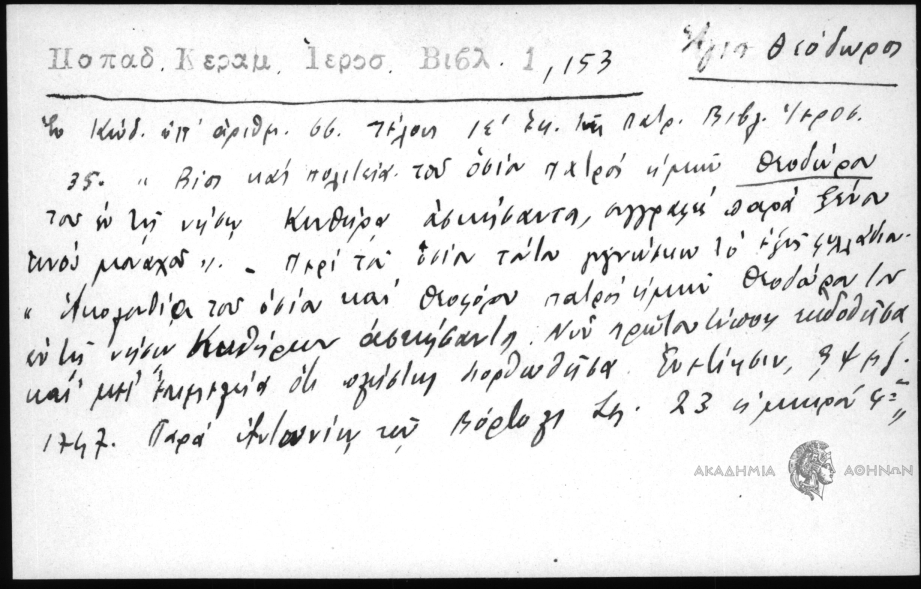 Παπαδ. Κεραμ. Ἱεροσ. Βιβλ. 1, 153
Ἅγιος Θεόδωρος
Ἐν Κώδ. ὑπ' ἀριθμ. 66. τέλους ΙΣ' ἑκ. τῆς Πατρ. Βιβλ. Ἱεροσ.
35. " Βίος καὶ πολιτεία τοῦ ὁσίου πατρὸς ἡμῶν Θεοδώρου
τοῦ ἐν τῇ νήσῳ Κυθήρᾳ ἀσκήσαντος, συγγραφεὶς παρὰ ξένου
τινοῦ μοναχοῦ ". - Περὶ τοῦ ὁσίου τούτου γιγνώσκω τὸ ἑξῆς φυλλάδιον·
" Ἀκολουθία τοῦ ὁσίου καὶ θεοφόρου πατρὸς ἡμῶν Θεοδώρου τοῦ
ἐν τῇ νήσῳ Κυθήρων ἀσκήσαντος. Νῦν πρῶτον τύποις ἐκδοθεῖσα
καὶ μετ' ἐπιμελείας ὅτι πλείστης διορθωθεῖσα. Ἐνετίησιν,
1747. Παρὰ Ἀντωνίῳ τῷ Βόρτολι Σελ. 23 εἰς μικρὸν 4ον "
ΑΚΑΔΗΜΙΑ ΑΘΗΝΩΝ